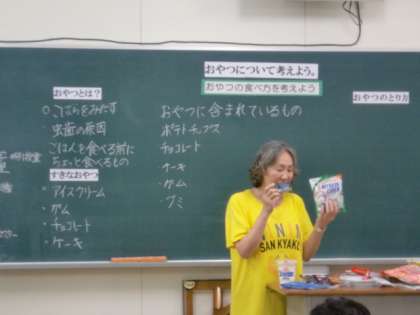 おやつについて考えよう。
おやつの食べ方を考えよう
おやつとは?
○こばらをみたす
・虫歯の原因
・ごはんを食べる前に
ちょっと食べるもの
すきなおやつ
・アイスクリーム
・ガム
・チョコレート
・ケーキ
おやつに含まれているもの
ポテトチップス
チョコレート
ケーキ
ガム
グミ
おやつのとり方
SANKYAKU